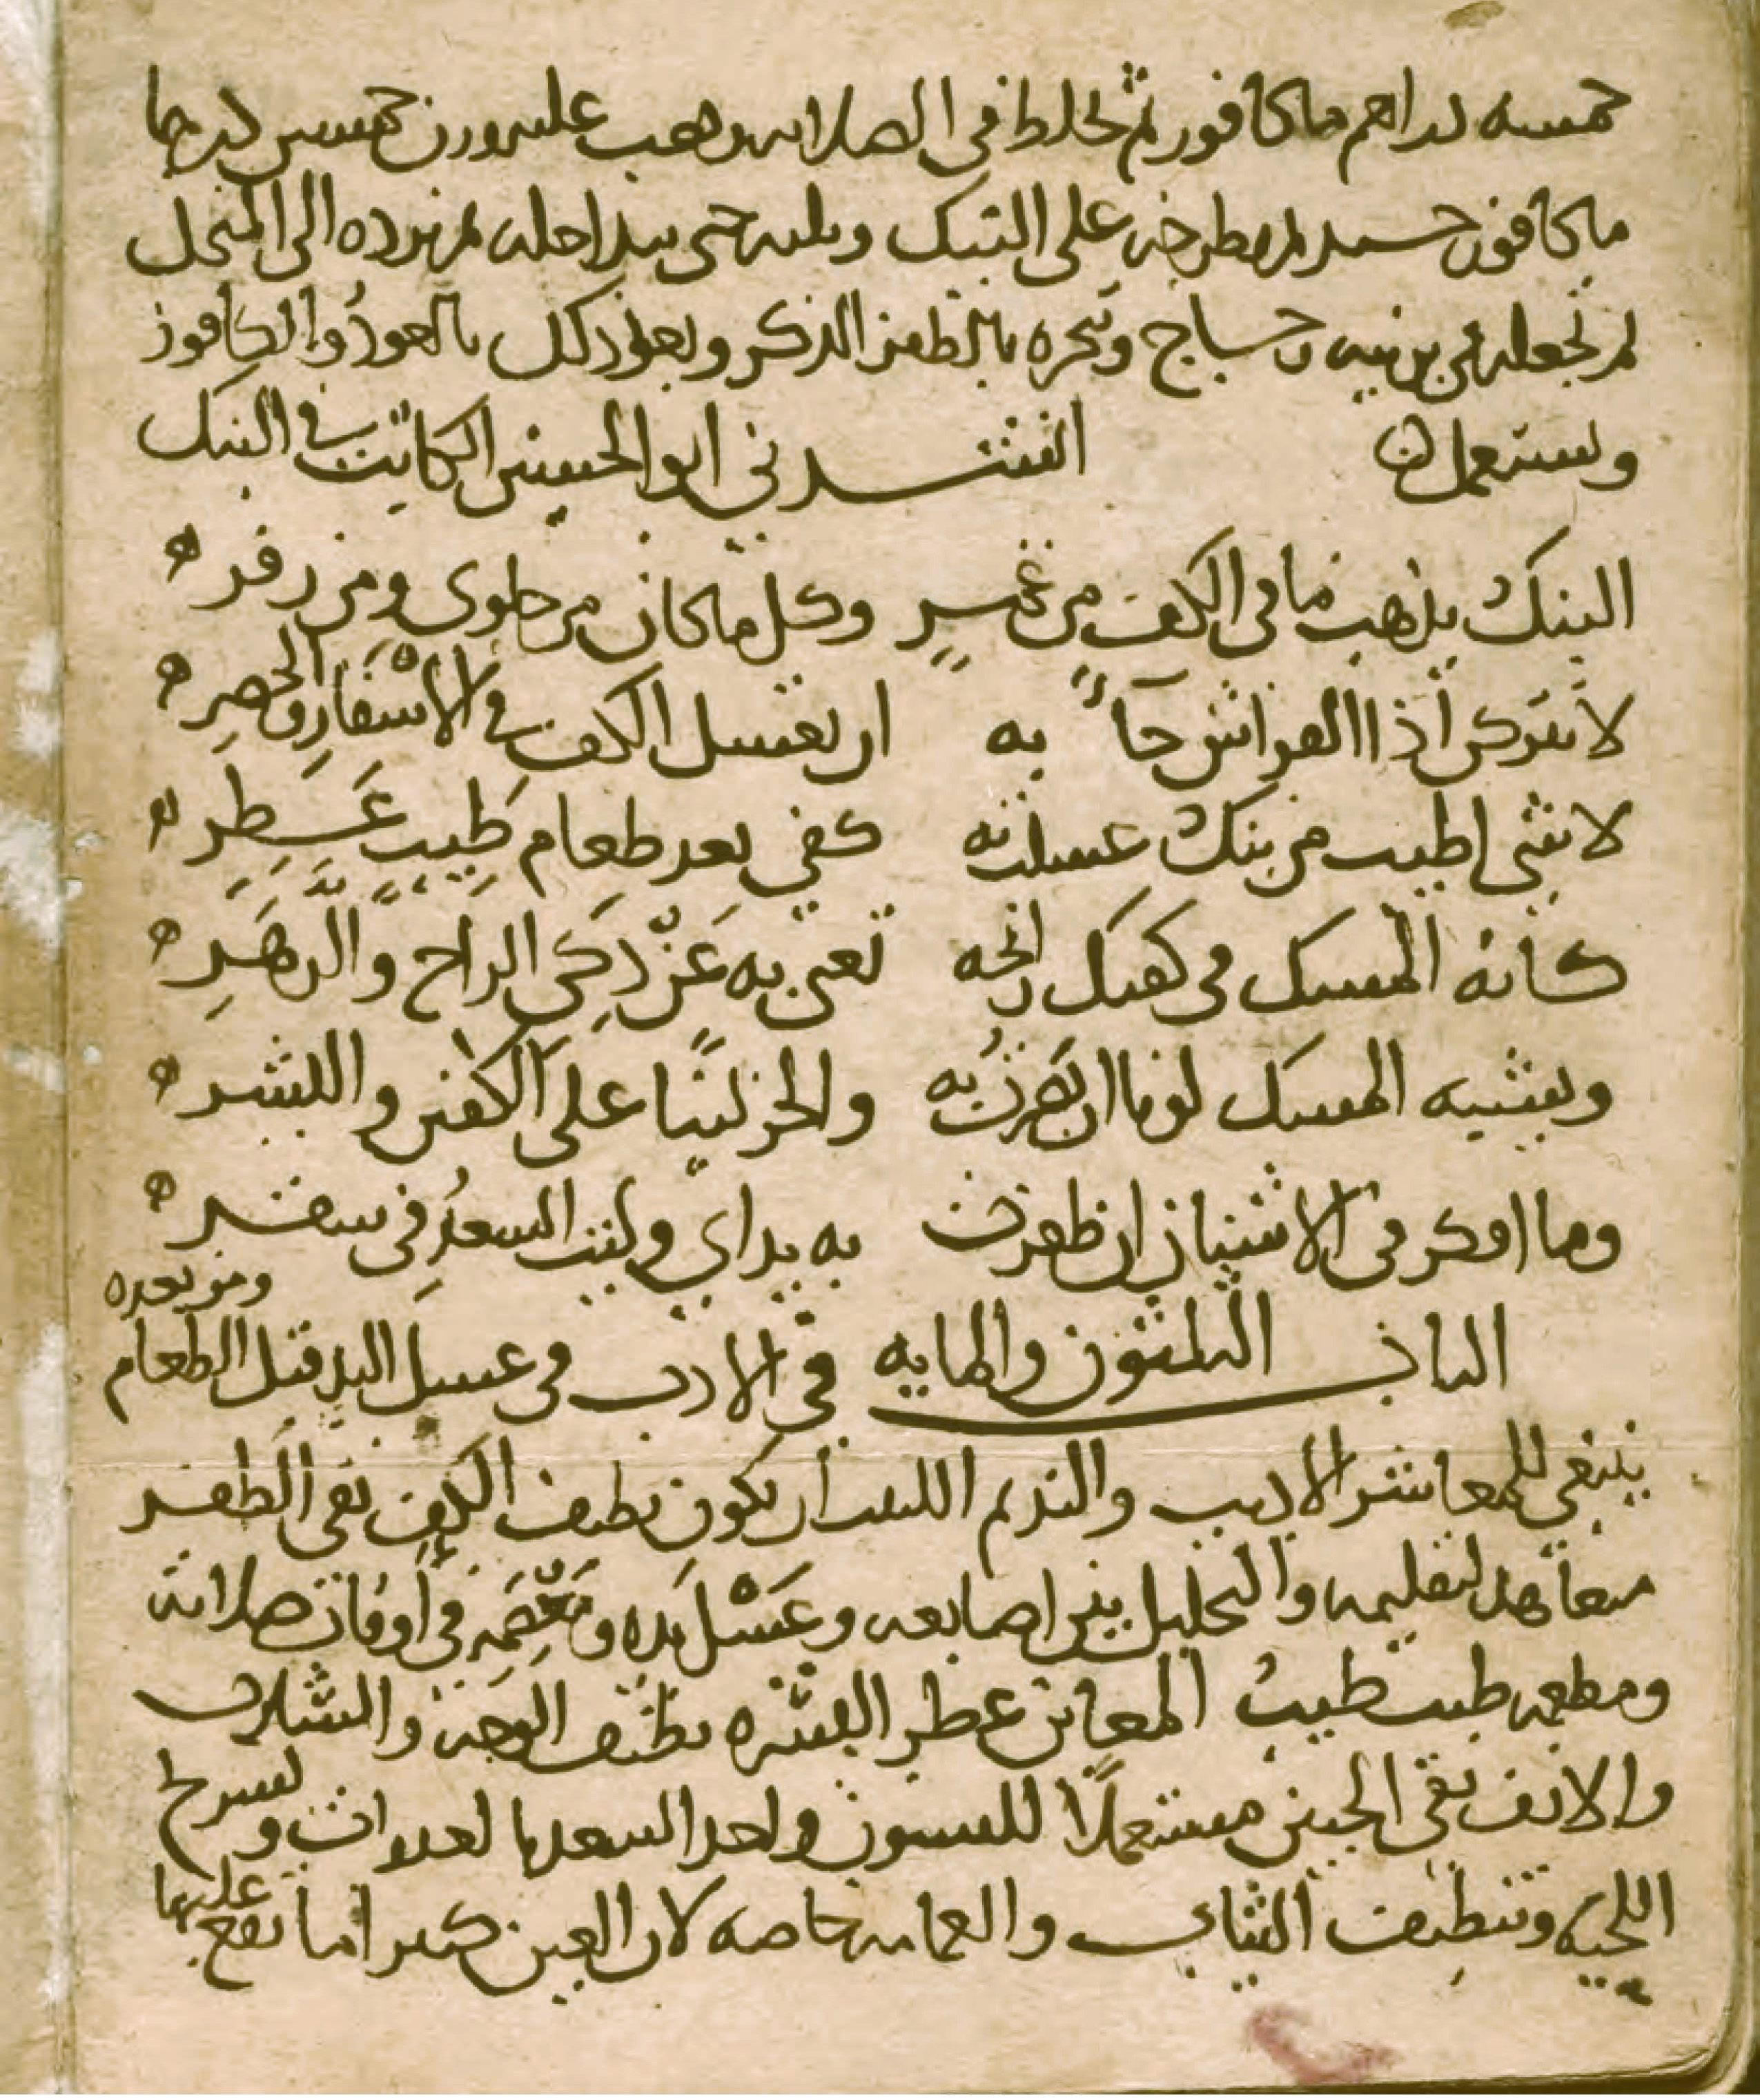 خمسه دراهم ماكافور ثم تخلط في الصلايه وهب عليه وزن خمسين درهما
ماكافور جيد ثم يطرحه على البنك ويلته حتى يبدا حله ثم ترده الى المنخل
ثم تجعله في برنيه زجاج وتبخره بالظفر الذكر وبعد ذلك بالعود والكافور
ويستعمل انشدني ابو الحسين الكاتب في البنك
البنك يذهب ما في الكف من غمر وكل ما كان من حلوى ومن زفر
لا تنكرن اذا الفراش جاء به ان يغسل الكف في الاسفار والحضر
لا شي اطيب من بنك غسلت به كفي بعد طعام طيب عطر
كانه المسك في كفيك رائحه تغنى به عن ذكي الراح والزهر
ويشبه المسك لونا ان بصرت به والخز لينا على الكفين والبشر
وما افكر في الاشنان ان ظفرت به يداي وليت السعد في سقر
الباب الثلثون والمايه في الادب في غسل اليد قبل الطعام ومن بعده
ينبغي للمعاشر الاديب والنديم اللبيب ان يكون نظيف الكف نقي الظفر
متعاهدا لتقليمه والتخليل بين اصابعه وغسل يده ومعصمه في اوقات صلاته
ومطعمه طيب طيب المغابن عطر البشره نظيف الوجه والشارب
والانف نقي الجبين مستعملا للسنون واحد السعد بالغدوات وتسريح
اللحيه وتنظيف الثياب والعمامه خاصه لان العين كثيرا ما تقع عليها